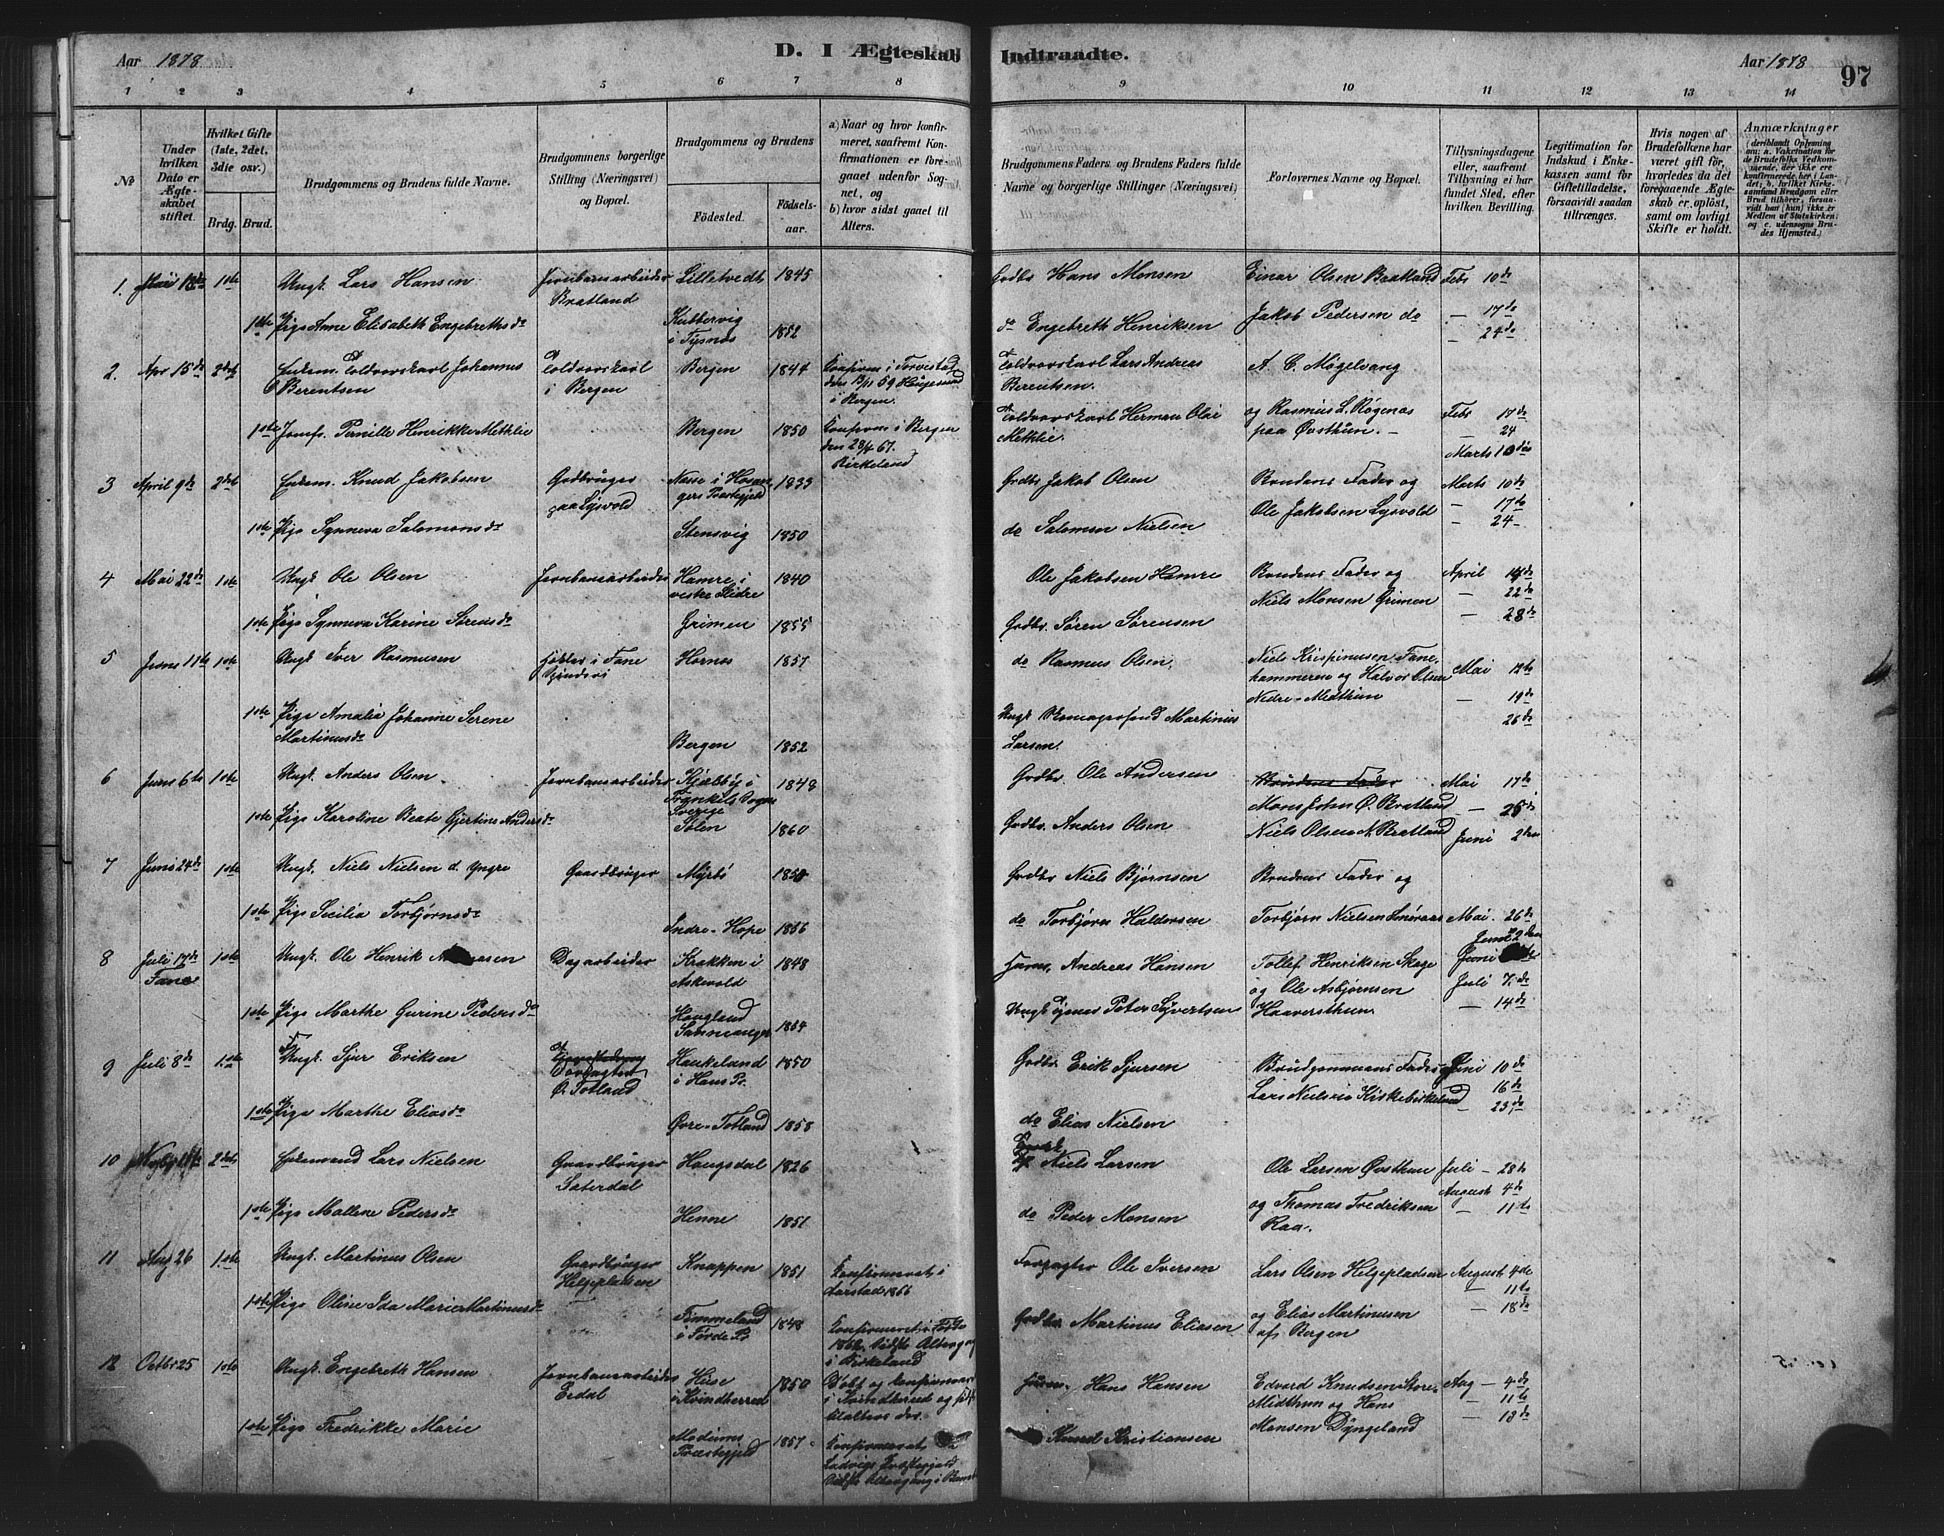 Aar 1878. D. I Ægteskab Indtraadte. Aar 1878 97
1 2 3 4 5 6 7 8 9 10 11 12 13 14
No
Under hvilken Dato er Ægteskabet stiftet.
Hvilket Gifte (1ste, 2det, 3die osv.)
Brdg. Brud.
Brudgommens og Brudens fulde Navne.
Brudgommens borgerlige Stilling (Næringsvei) og Bopæl.
Brudgommens og Brudens
Födested. Födselsaar.
a) Naar og hvor konfirmeret, saafremt Konfirmationen er foregaaet udenfor Sognet, og
b) hvor sidst gaaet til Alters.
Brudgommens Faders og Brudens Faders fulde Navne og borgerlige Stillinger (Næringsvei)
Forlovernes Navne og Bopæl.
Tillysningsdagene eller, saafremt Tillysning ei har fundet Sted, efter hvilken Bevilling.
Legitimation for Indskud i Enkekassen samt for Giftetilladelse, forsaavidt saadan tiltrænges.
Hvis nogen af Brudefolkene har været gift för, hvorledes da det foregaaende Ægteskab er oplöst, samt om lovligt Skifte er holdt.
Anmærkninger
deriblandt Oplysning om: a. Vakcination for de Brudefolks Vedkommende, der ikke ere konfirmerede her i Landet; b. hvilket Kirkesamfund Brudgom eller Brud tilhörer, forsaavidt han (hun) ikke er Medlem af Statskirken; og c. udensogns Brudes Hjemsted.)
1. 1ste Ungk. Lars Hansen Jernbanearbeider Bratland Lilletvedt 1845 Grdbr Hans Monsen Einar Olsen Bratland Feb 10de
1ste Pige Anne Elisabeth Engebrethsdr i Tysnæs 1852 do Engebreth Henriksen Jakob Pedersen do — 17de
— 24de
2. Apr 15de 2det Enkem. Toldrorskarl Johannes Berentsen Toldrorskarl i Bergen Bergen 1844 Konfirm i Torvestad i Bergen. Toldrorskarl Lars Andreas Berentsen. A. C. Mögelvang
1ste Jomfr. Pernille Henrikke Methlie Bergen 1850 Konfirm i Bergen den 28/4 67. Birkeland Toldrorskarl Herman Olai Methlie. og Rasmus L. Røgenæs paa Øvsthun. Feb 17de
— 24
Marts
3 April 9de 2det Enkem. Knud Jakobsen Gardbruger paa Lysvold i Hosangers Præstegjeld 1833 Grdbr Jakob Olsen Brudens Fader og Marts 10de
1ste Pige Synneva Salomonsdr Stensvig 1850 do Salomon Nielsen Ole Jakobsen Lysvold — 17de
— 24
4 Mai 22de 1ste Ungk Ole Olsen Jernbanearbeider Hamre i vestre Slidre 1840 Ole Jakobsen Hamre Brudens Fader og April
1ste Pige Synneva Karine Sørensdr Grimen 1855 Grdbr. Sören Sörensen Niels Monsen Grimen — 22de
— 28de
5 Juni 11te 1ste Ungk Iver Rasmusen i Fane Hornes 1857 do Rasmus Olsen. Niels Krispinusen Fanehammeren og Halvor Olsen Nedre-Midthun Mai 12te
1ste Pige Amalia Johanne Serene Martinusdr Bergen 1852 Ungk Martinus Larsen. — 19de
26de
6 Juni 6te 1ste Ungk. Anders Olsen Jernbanearbeider i Sverge 1848 Grdbr. Ole Andersen Brudens Fader Mai 17de
1ste Pige Karoline Beate Gjertine Andersdr 1860 Grdbr. Anders Olsen Mons John Ø. Bratland
Niels Olsen Bratland Juni 2den
7 Juni 24de 1ste Ungk. Niels Nielsen d. yngre Gaardbruger Myrbø Grdbr Niels Bjørnsen Brudens Fader og
1ste Pige Secilia Torbjørnsdr Indre-Hope 1856 do Torbjørn Haldorsen Torbjørn Nielsen Smøraas Mai 26de
Juni 2den
8 Juli 17de Fane 1ste Ungk. Ole Henrik Dagarbeider Krakken i Askevold 1848 Andreas Hansen Tollef Henriksen Skage og Ole Asbjørnsen Haaversthun Juni
Juli 7de
— 14de
1ste Pige Marthe Gurine Pedersdr Hougland Samnanger 1854 Peter Syvertsen
9 Juli 8de 1ste Ungk. Sjur Eriksen Ø. Totland Haukeland i Haus Pr. 1850 Grdbr. Erik Sjursen Brudgommens Fader og Juni 10de
1ste Pige Marthe Eliasdr Øvre-Totland 1858 do Elias Nielsen Lars Nielsen Kirkebirkeland — 16de
— 23de
10 2det Enkemand Lars Nielsen Gaardbruger Saterdal Hougsdal 1826 Niels Larsen Ole Larsen Øvsthun Juli — 28de
1ste Pige Mallene Pedersdr Henne 1851 do Peder Monsen og Thomas Fredriksen Raa. August 4de
— 11te
11 Aug 26 1ste Ungk. Martinus Olsen Gaardbruger Helgepladsen Knappen 1851 Konfirmeret i 1866 Forpagter Ole Iversen Lars Olsen Helgepladsen August 4de
— 11te
1ste Pige Oline Ida Marie Martinusdr Timmeland i Førde Pr. 1848 Konfirmeret i Førde 1862. Sidste Altergang i Birkeland Grdbr Martinus Eliasen og Elias Martinusen af Bergen — 18de
12 Octbr 25 1ste Ungk. Engebreth Hansen Jernbanearbeider Erdal Huse i Kvindherred 1850 Døbt og konfirmeret i Kvindherred og Hans Hansen Edvard Knudsen Store-Midthun og Hans Monsen Dyngeland Aug — 4de
— 11te
— 18de
1ste Pige Fredrikke Marie Modums Præstegjeld 1857 Konfirmeret Præstegjeld Sidste Altergang i Knud Kristiansen